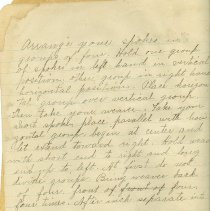 Arrange your spokes in
groups of four. Hold one group
of spokes in left hand in vertical
position. Other group in right hand
horizontal position. Place horizon-
tal group over vertical group
Then take your weaver. Take your
short spoke, place parallel with hori-
zontal group, begin at center and
let extend toward right. Hold weaver
with short end to right and long
end to left. At first do not
divide groups. Bring weaver back
four times. After each separate into